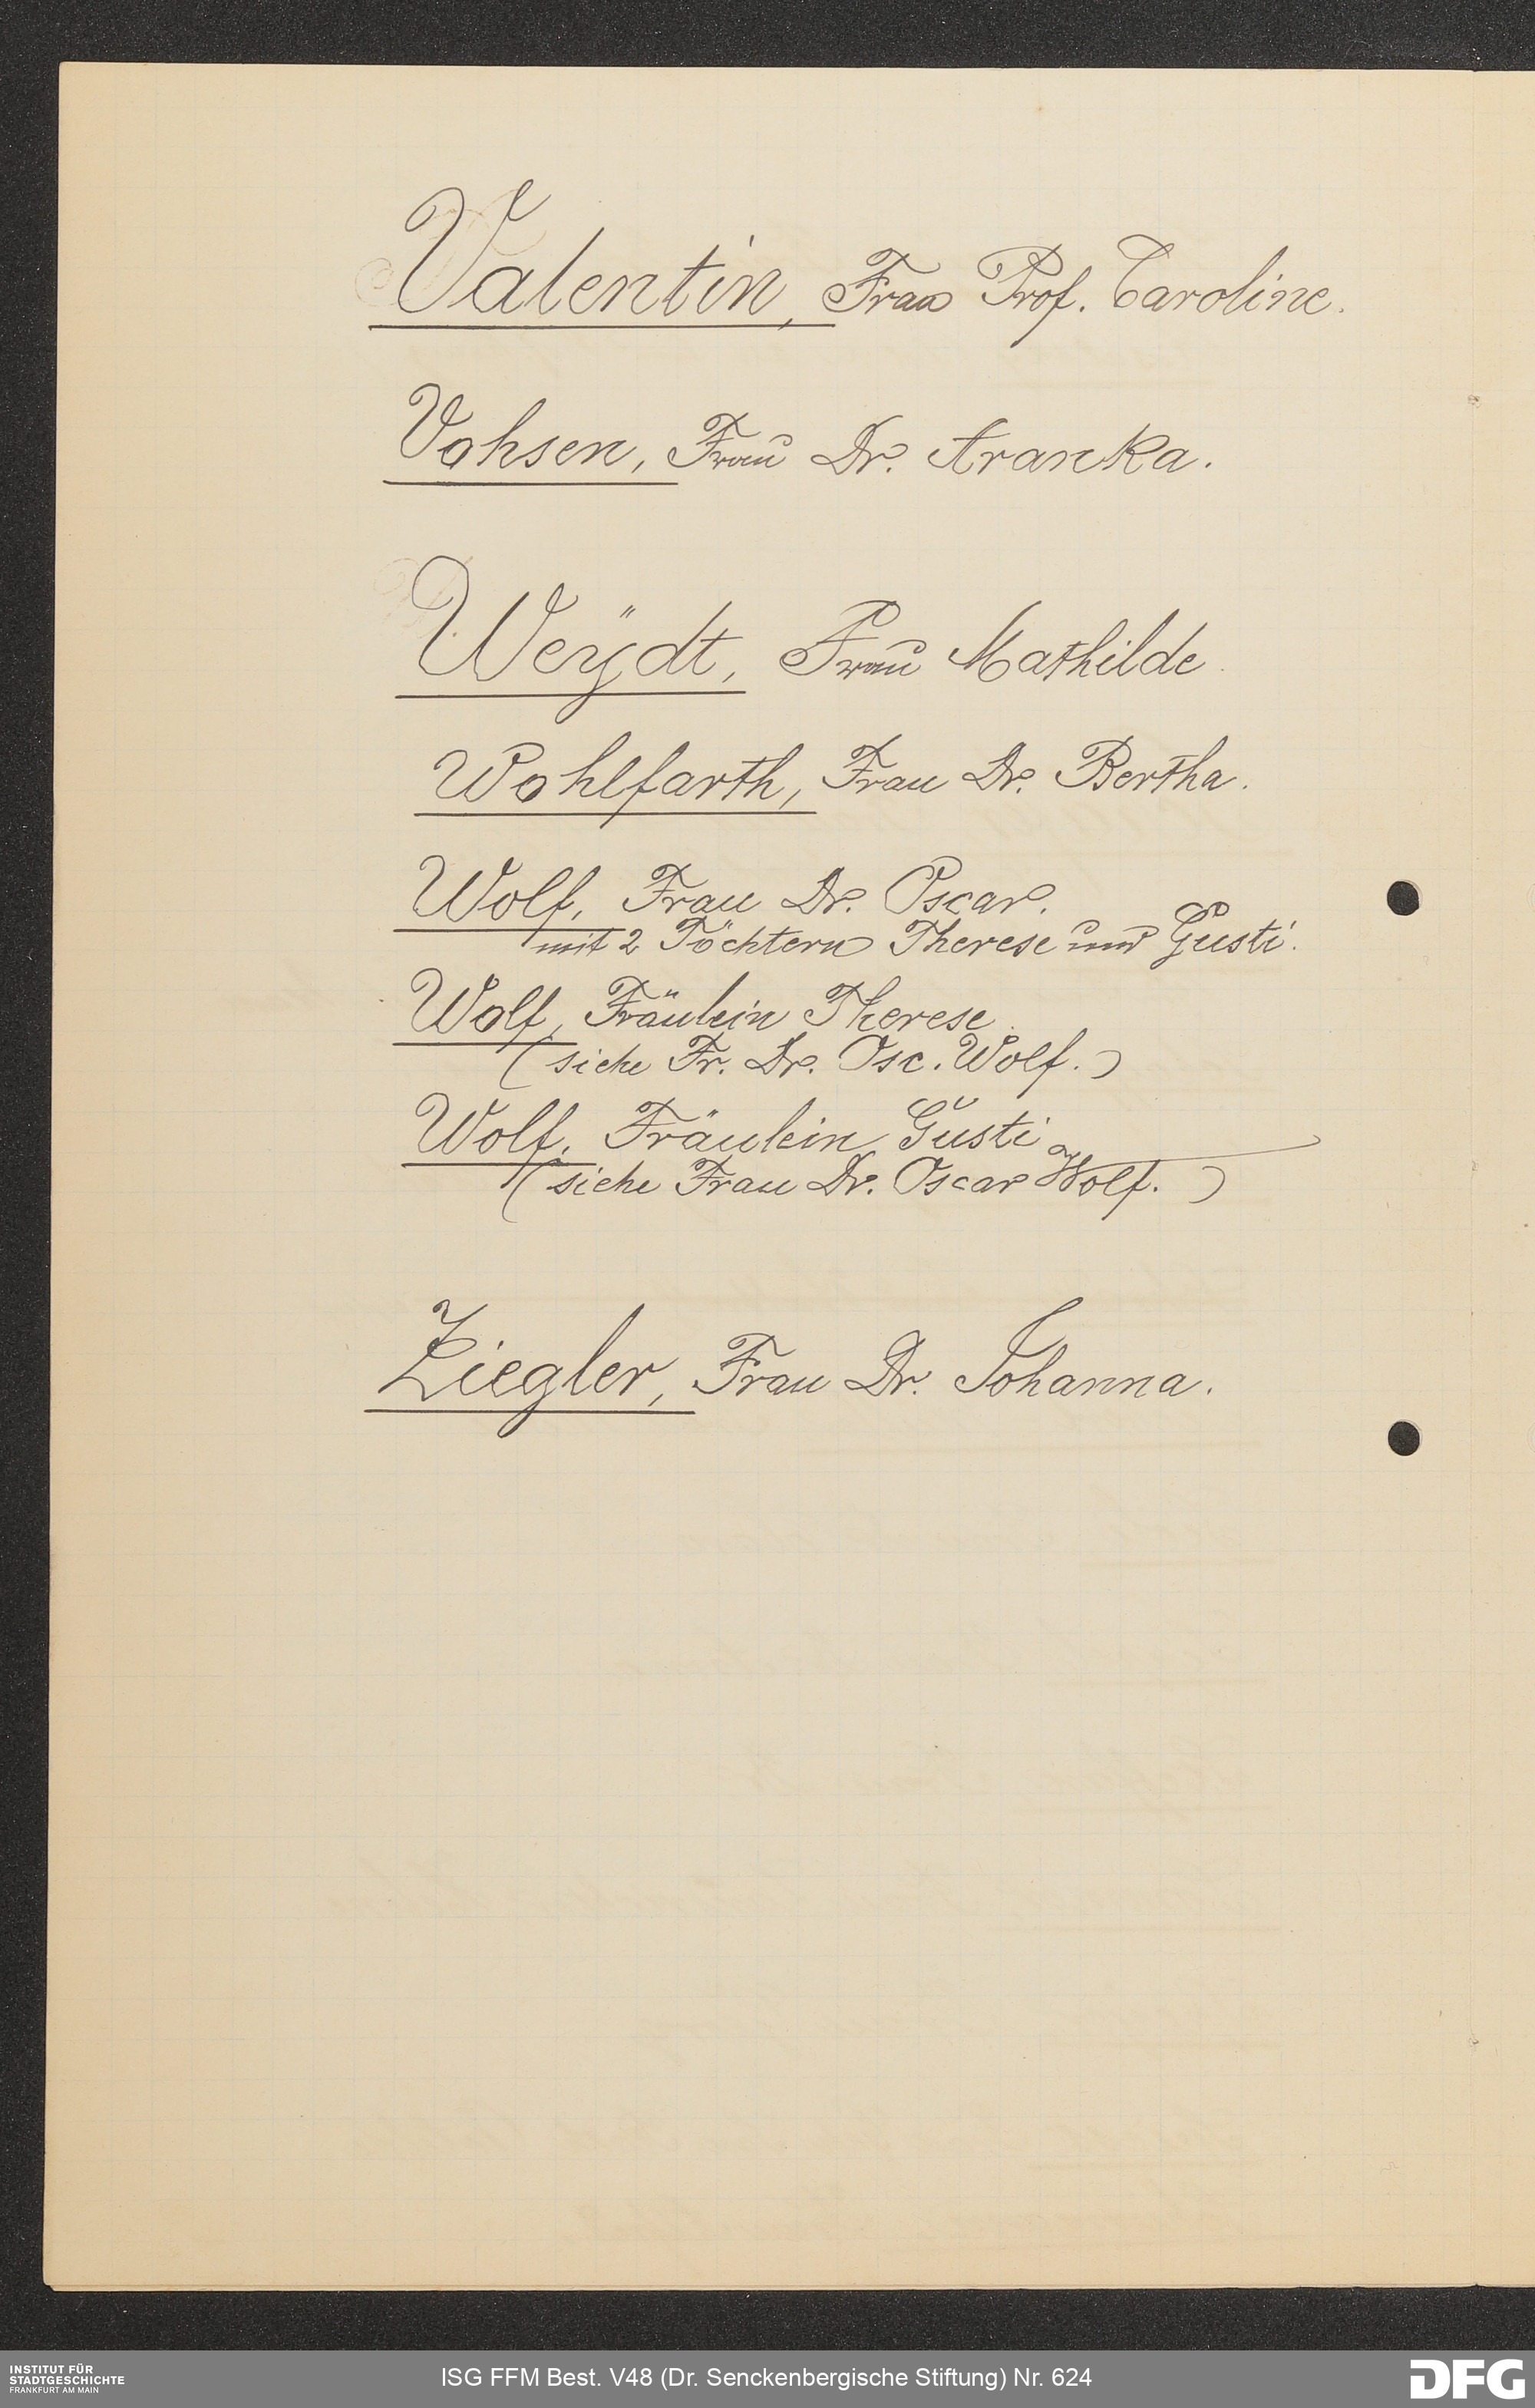 Valentin, Frau Prof. Caroline.
Vohsen, Frau Dr. Aranka.
Weÿdt, Frau Mathilde.
Wohlfarth, Frau Dr. Bertha.
Wolf, Frau Dr. Oscar.
mit 2 Töchtern Therese und Gusti.
Wolf, Fräulein Therese.
(siehe Fr. Dr. Osc. Wolf.)
Wolf, Fräulein Gusti
(siehe Frau Dr. Oscar Wolf.)
Ziegler, Frau Dr. Johanna.
INSTITUT FÜR
STADTGESCHICHTE
FRANKFURT AM MAIN
ISG FFM Best. V48 (Dr. Senckenbergische Stiftung) Nr. 624
DFG